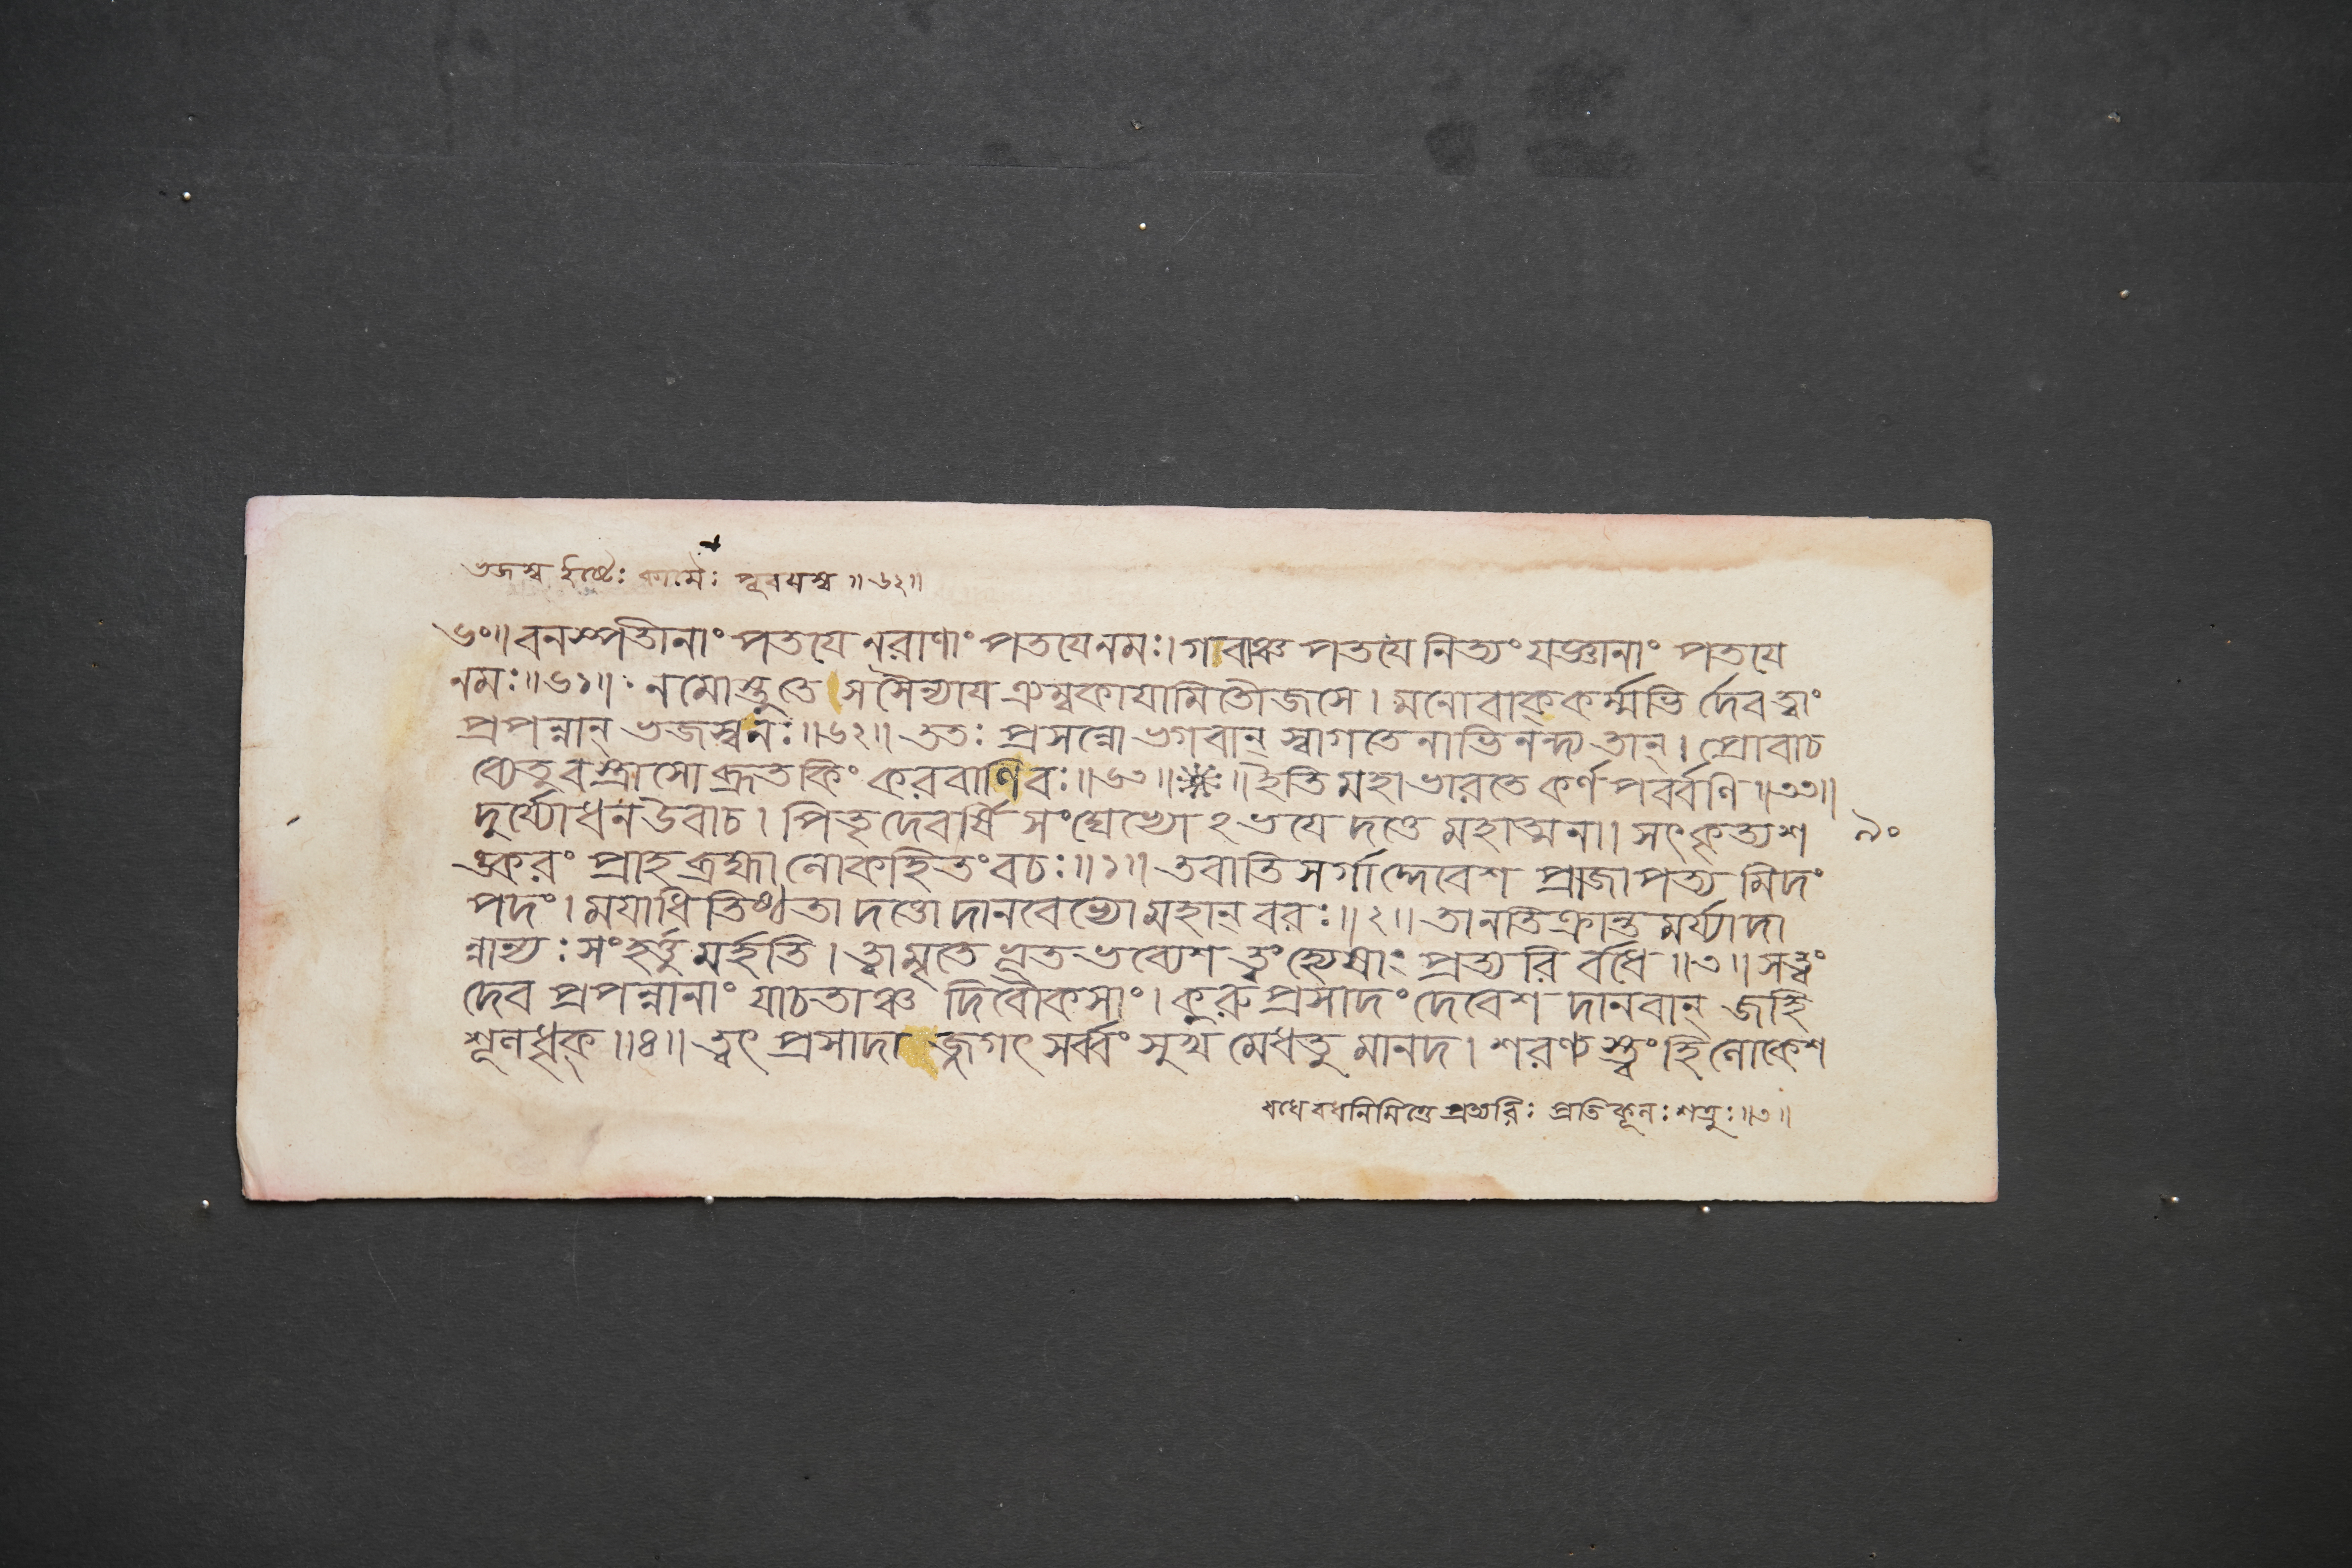 ভজস্ব ইষ্টৈঃ কামৈঃ পূরয়স্ব ॥ ৬২॥
৬০॥ বনস্পতীনাং পতয়ে নরাণাং পতয়ে নমঃ। গবাঞ্চ পতয়ে নিত্যং যজ্ঞানাং পতয়ে
নমঃ॥ ৬১॥ নমোস্তুতে সসৈন্যায় ত্র্যম্বকায়ামিতৌজসে। মনোবাক্কর্ম্মভি র্দেব ত্বাং
প্রপন্নান্ ভজস্ব নঃ॥৬২॥ ততঃ প্রসন্নো ভগবান্ স্বাগতেনাভিনন্দ্য তান্। প্রোবাচ
ব্যেতু বস্ত্রাসো ব্রূত কিং করবাণি বঃ॥৬৩॥ ঃ॥ ইতি মহাভারতে কর্ণপর্ব্বণি ॥৩৩॥
দুর্য্যোধন উবাচ। পিতৃদেবর্ষি সংঘেভ্যো ঽভয়ে দত্তে মহাত্মনা। সৎকৃত্য শ ৯০
ঙ্করং প্রাহ ব্রহ্মা লোকহিতং বচঃ॥১॥ তবাতিসর্গাদ্দেবেশ প্রাজাপত্য মিদং
পদং। ময়াধিতিষ্ঠতা দত্তো দানবেভ্যো মহান্ বরঃ॥২॥ তানতিক্রান্ত মর্য্যাদা
ন্নান্যঃ সংহর্ত্তু মর্হতি। ত্বামৃতে ভূত ভব্যেশ ত্বং হ্যেষাং প্রত্যরি র্বধে ॥৩॥ সত্ত্বং
দেব প্রপন্নানাং যাচতাঞ্চ দিবৌকসাং। কুরু প্রসাদং দেবেশ দানবান্ জহি
শূলধৃক্॥৪॥ ত্বৎ প্রসাদা জ্জগৎ সর্ব্বং সুখ মেধতু মানদ। শরণ্য স্ত্বং হি লোকেশ
বধে বধনিমিত্তে প্রত্যরিঃ প্রতিকূলঃ শত্রুঃ॥৩॥